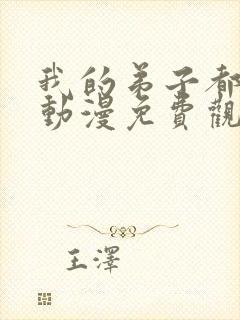 我的弟子都
動漫免費觀
王澤